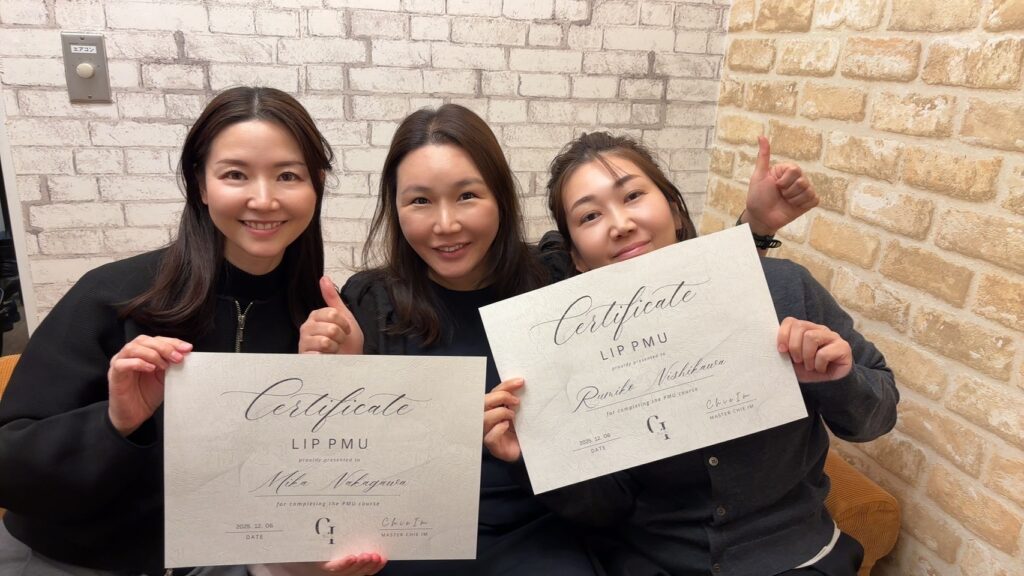 エアコン
Certificate
LIP PMU
proudly presented to
Mika Nakagawa
for completing the PMU course
2025. 12. 06
DATE
GI
Chie Im
MASTER CHIE IM
Certificate
LIP PMU
proudly presented to
Rumiko Nishikawa
for completing the PMU course
2025. 12. 06
DATE
GI
Chie Im
MASTER CHIE IM